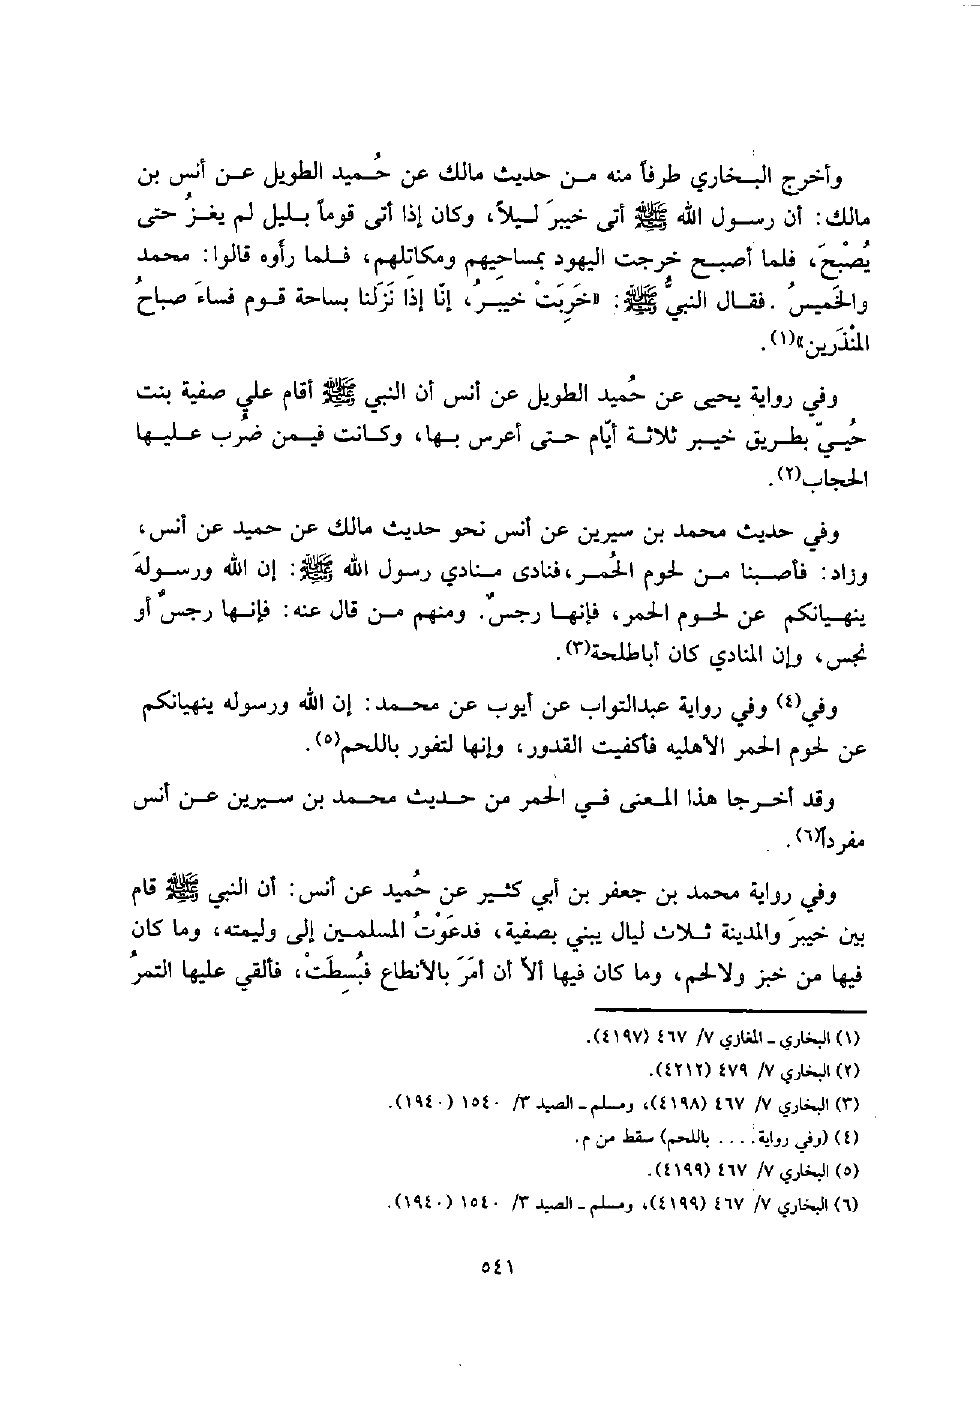 وأخرج البخاري طرفاً منه من حديث مالك عن حُميد الطويل عن أنس بن
مالك: أن رسول الله ﷺ أتى خيبرَ ليلاً، وكان إذا أتى قوماً بليل لم يغزُ حتى
يُصْبَحَ، فلما أصبح خرجت اليهود بمساحيهم ومكاتلهم، فلما رأوه قالوا: محمد
والخميسُ. فقال النبيُّ ﷺ: «خَرِبَتْ خيبرُ، إنّا إذا نَزَلنا بساحة قوم فساءَ صباحُ
المُنْذَرين»(١).
وفي رواية يحيى عن حُميد الطويل عن أنس أن النبي ﷺ أقام علي صفية بنت
حُييّ بطريق خيبر ثلاثة أيّام حتى أعرس بها، وكانت فيمن ضُرب عليها
الحجاب(٢).
وفي حديث محمد بن سيرين عن أنس نحو حديث مالك عن حميد عن أنس،
وزاد: فأصبنا من لحوم الحُمر، فنادى منادي رسول الله ﷺ: إن الله ورسولهَ
ينهيانكم عن لحوم الحمر، فإنها رجسٌ. ومنهم من قال عنه: فإنها رجسٌ أو
نجس، وإن المنادي كان أباطلحة(٣).
وفي(٤) وفي رواية عبدالتواب عن أيوب عن محمد: إن الله ورسوله ينهيانكم
عن لحوم الحمر الأهليه فأكفيت القدور، وإنها لتفور باللحم(٥).
وقد أخرجا هذا المعنى في الحمر من حديث محمد بن سيرين عن أنس
مفرداً(٦).
وفي رواية محمد بن جعفر بن أبي كثير عن حُميد عن أنس: أن النبي ﷺ قام
بين خيبرَ والمدينة ثلاث ليال يبني بصفية، فدعَوْتُ المسلمين إلى وليمته، وما كان
فيها من خبز ولالحم، وما كان فيها ألاّ أن أمَرَ بالأنطاع فبُسِطَتْ، فألقي عليها التمرُ
(١) البخاري ـ المغازي ٧/ ٤٦٧ (٤١٩٧).
(٢) البخاري ٧/ ٤٧٩ (٤٢١٢).
(٣) البخاري ٧/ ٤٦٧ (٤١٩٨)، ومسلم ـ الصيد ٣/ ١٥٤٠ (١٩٤٠).
(٤) (وفي رواية: .... باللحم) سقط من م.
(٥) البخاري ٧/ ٤٦٧ (٤١٩٩).
(٦) البخاري ٧/ ٤٦٧ (٤١٩٩)، ومسلم ـ الصيد ٣/ ١٥٤٠ (١٩٤٠).
٥٤١